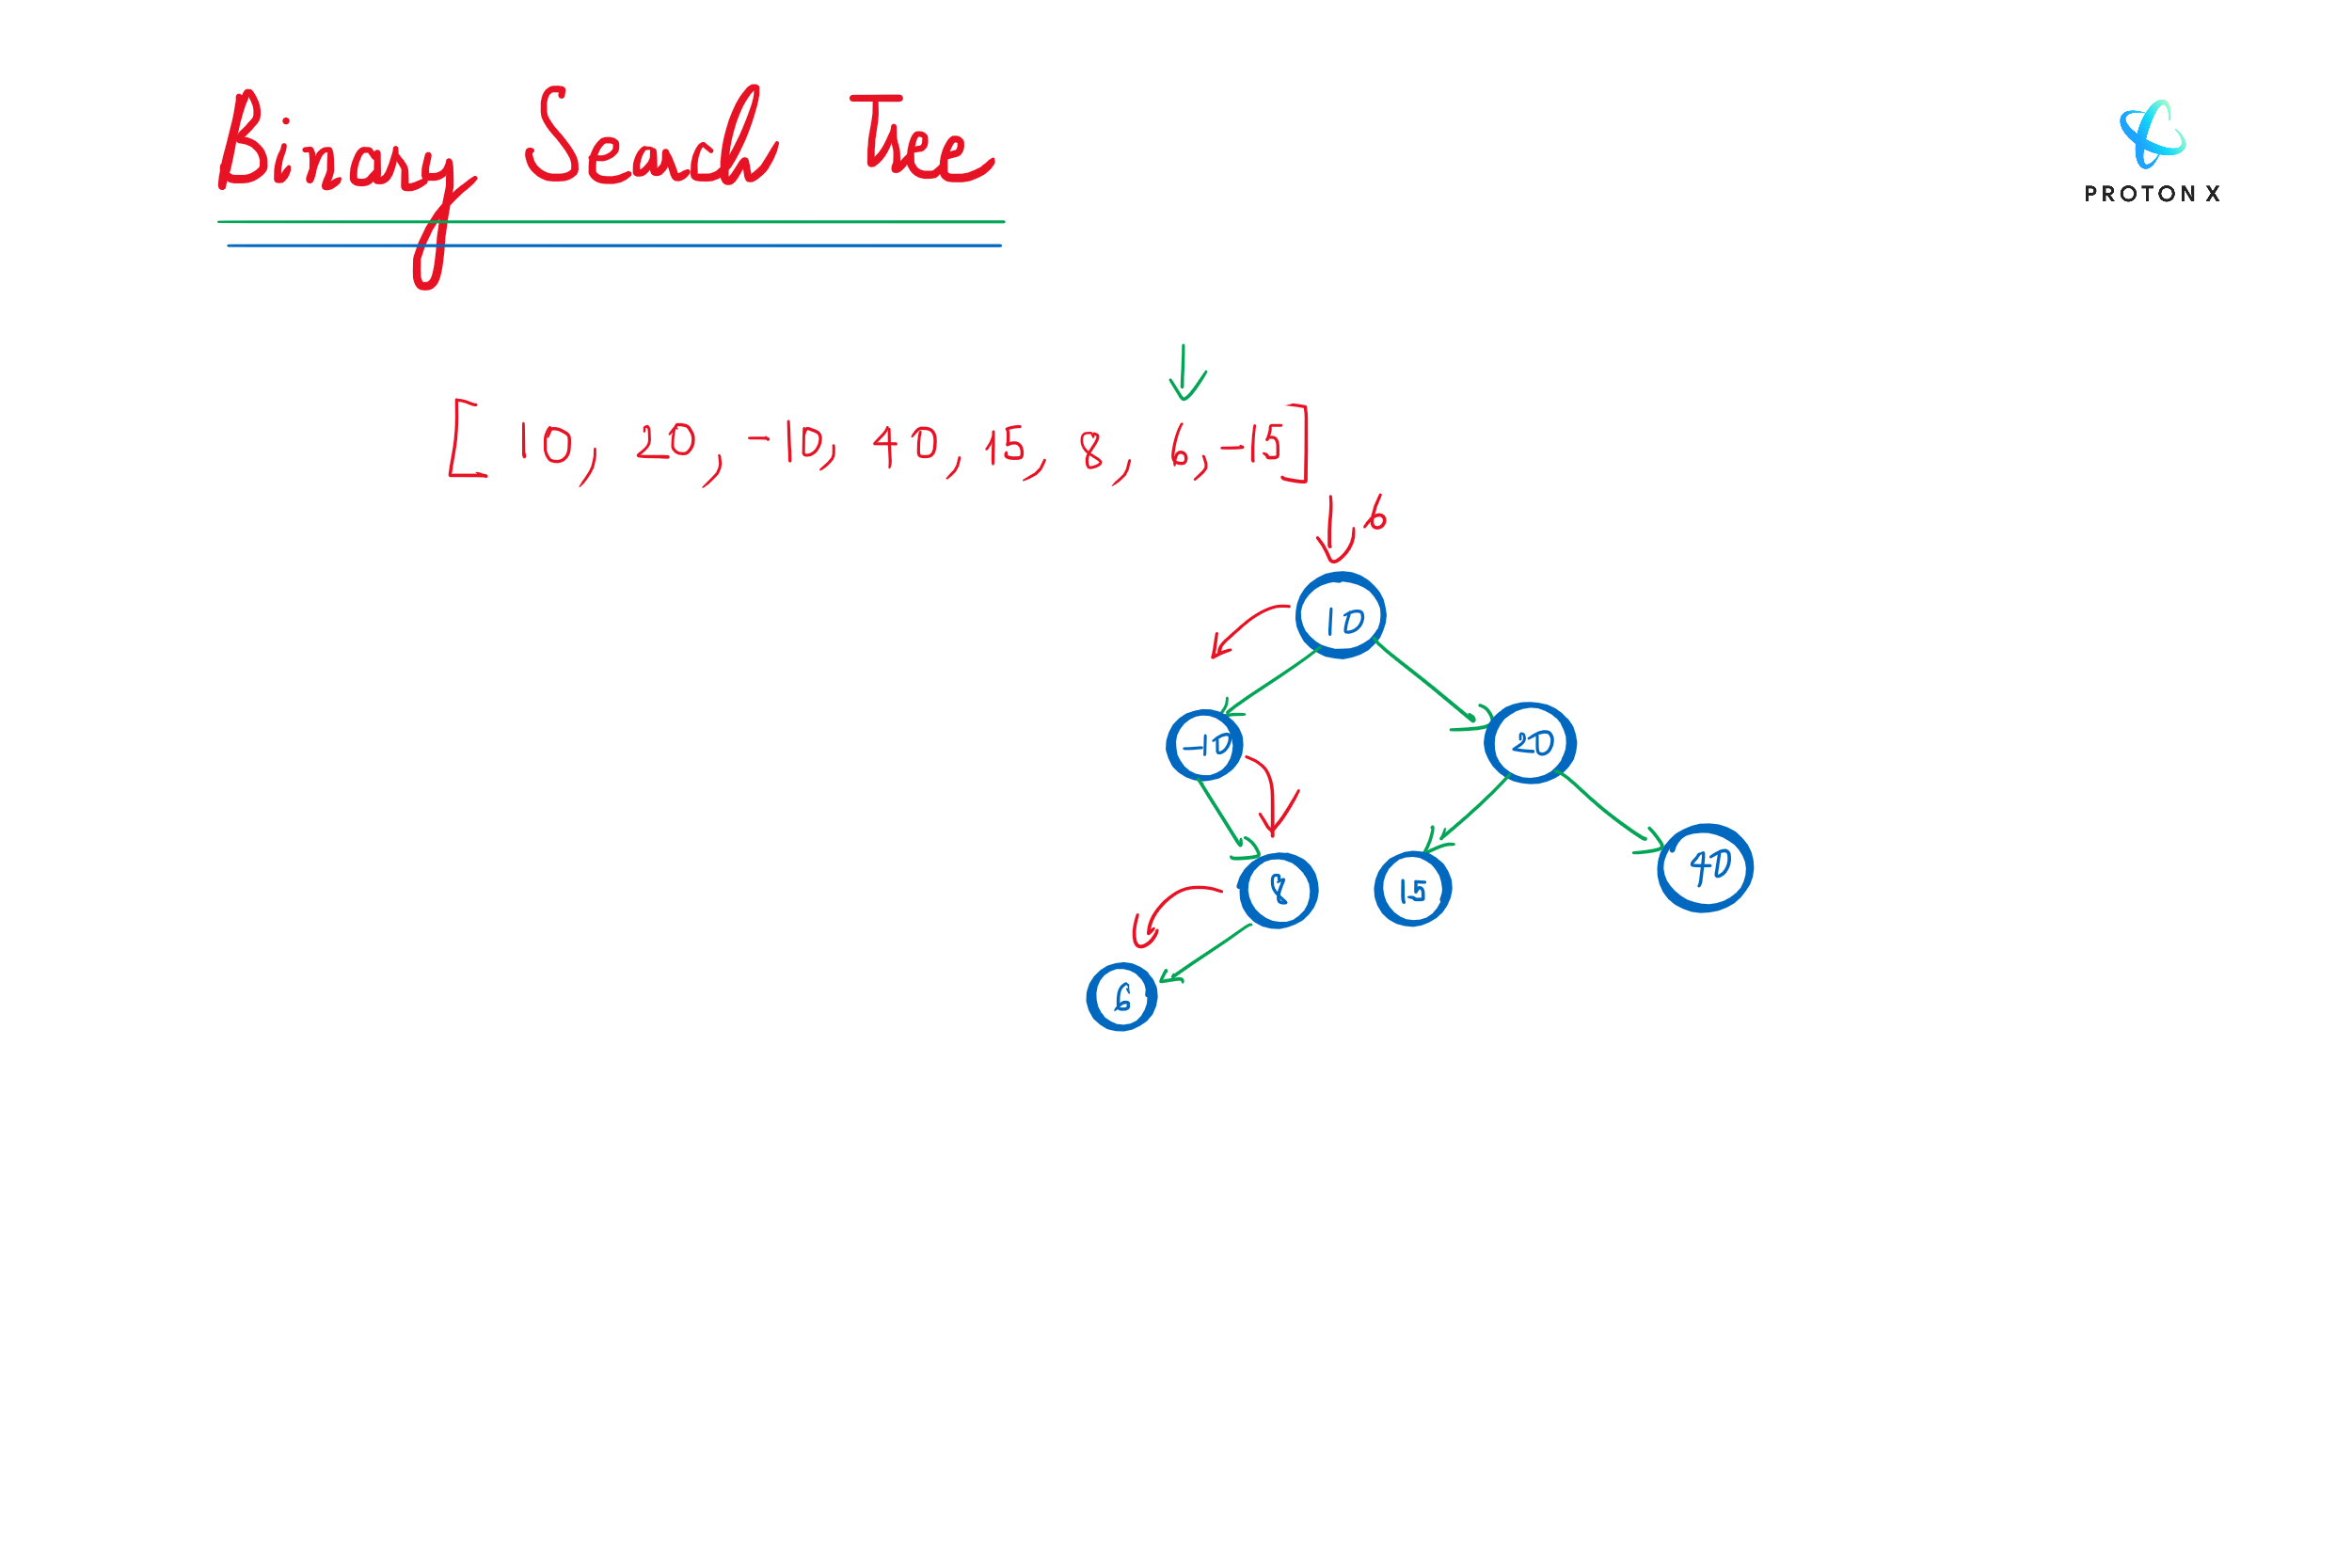 Binary Search Tree
PROTON X
[ 10, 20, -10, 40, 15, 8, 6, -15]
6
10
-10
20
8
15
40
6